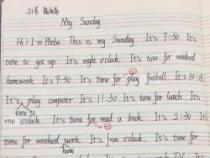 21号
My Sunday
Hi! I'm Phebe. This is my Sunday. It's 7:30. It's
time to get up. It's eight o'clock. It's time for weekend
homework. It's 9:30. It's time for play football. It's 10:
It's play computer. It's 11:30. It's time for lunch. It's
time to
one o'clock. It's time for read a book. It's 2:30. It's
time for weekend work. It's five o'clock. It's time for
home